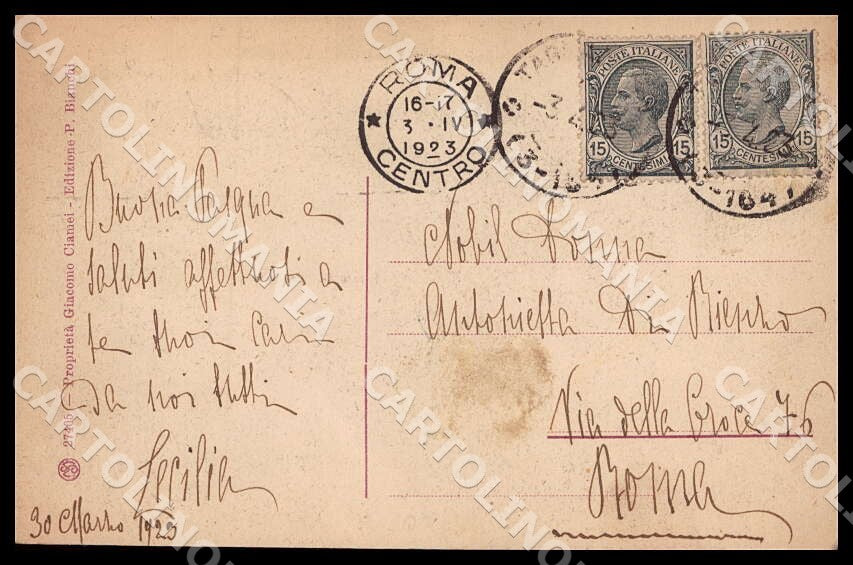 27405 - Proprietà Giacomo Ciamei - Edizione P. Bianchi
Buona Pasqua e
saluti affettuosi a
te tuoi cari
da noi tutti
Cecilia
30 Marzo 1923
ROMA
16-17
3 · IV
1923
CENTRO
POSTE ITALIANE
15 CENTESIMI 15
POSTE ITALIANE
15 CENTESIMI 15
Nobil Donna
Antonietta De
Via della Croce 76
Roma
CARTOLINOMANIA